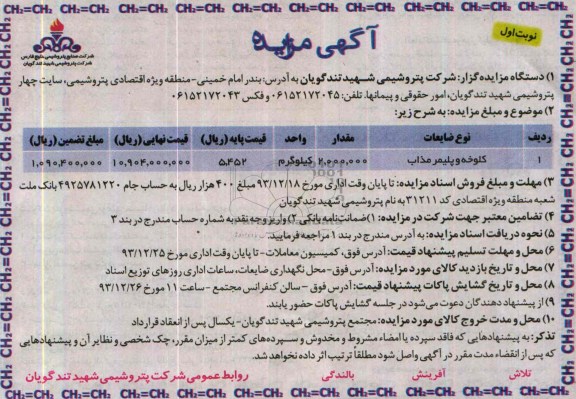 CH₂=CH₂ CH₂=CH₂ CH₂=CH₂ CH₂=CH₂ CH₂=CH₂ CH₂=CH₂ CH₂=CH₂ CH₂=CH₂
نوبت اول
آگهی مزایده
شرکت صنایع پتروشیمی خلیج فارس
شرکت پتروشیمی شهید تندگویان
۱) دستگاه مزایده گزار: شرکت پتروشیمی شهید تندگویان به آدرس: بندر امام خمینی-منطقه ویژه اقتصادی پتروشیمی، سایت چهار
پتروشیمی شهید تندگویان، امور حقوقی و پیمانها. تلفن: ۰۶۱۵۲۱۷۲۰۴۵ و فکس ۰۶۱۵۲۱۷۲۰۴۳
۲) موضوع و مبلغ مزایده: به شرح زیر:
ردیف نوع ضایعات مقدار واحد قیمت پایه (ریال) قیمت نهایی (ریال) مبلغ تضمین (ریال)
۱ کلوخه و پلیمر مذاب ۲,۰۰۰,۰۰۰ کیلوگرم ۵,۴۵۲ ۱۰,۹۰۴,۰۰۰,۰۰۰ ۱,۰۹۰,۴۰۰,۰۰۰
۳) مهلت و مبلغ فروش اسناد مزایده: تا پایان وقت اداری مورخ ۹۳/۱۲/۱۸ مبلغ ۴۰۰ هزار ریال به حساب جام ۴۹۲۵۷۸۱۲۲۰ بانک ملت
شعبه منطقه ویژه اقتصادی کد ۳۱۲۱۱ به نام پتروشیمی شهید تندگویان
۴) تضامین معتبر جهت شرکت در مزایده: ۱) ضمانت‌نامه بانکی ۲) واریز وجه نقد به شماره حساب مندرج در بند ۳
۵) نحوه دریافت اسناد مزایده: به آدرس مندرج در بند ۱ مراجعه فرمایید.
۶) محل و مهلت تسلیم پیشنهاد قیمت: آدرس فوق، کمیسیون معاملات- تا پایان وقت اداری مورخ ۹۳/۱۲/۲۵
۷) محل و تاریخ بازدید کالای مورد مزایده: آدرس فوق-محل نگهداری ضایعات، ساعات اداری روزهای توزیع اسناد
۸) محل و تاریخ گشایش پاکات پیشنهاد قیمت: آدرس فوق - سالن کنفرانس مجتمع - ساعت ۱۱ مورخ ۹۳/۱۲/۲۶
۹) از پیشنهاد دهندگان دعوت می‌شود در جلسه گشایش پاکات حضور یابند.
۱۰) محل و مدت خروج کالای مورد مزایده: مجتمع پتروشیمی شهید تندگویان- یکسال پس از انعقاد قرارداد
تذکر: به پیشنهادهایی که فاقد سپرده یا امضاء مشروط و مخدوش و سپرده‌های کمتر از میزان مقرر، چک شخصی و نظایر آن و پیشنهادهایی
که پس از انقضاء مدت مقرر در آگهی واصل شود مطلقاً ترتیب اثر داده نخواهد شد.
تلاش آفرینش بالندگی روابط عمومی شرکت پتروشیمی شهید تندگویان
CH₂=CH₂ CH₂=CH₂ CH₂=CH₂ CH₂=CH₂ CH₂=CH₂ CH₂=CH₂ CH₂=CH₂ CH₂=CH₂